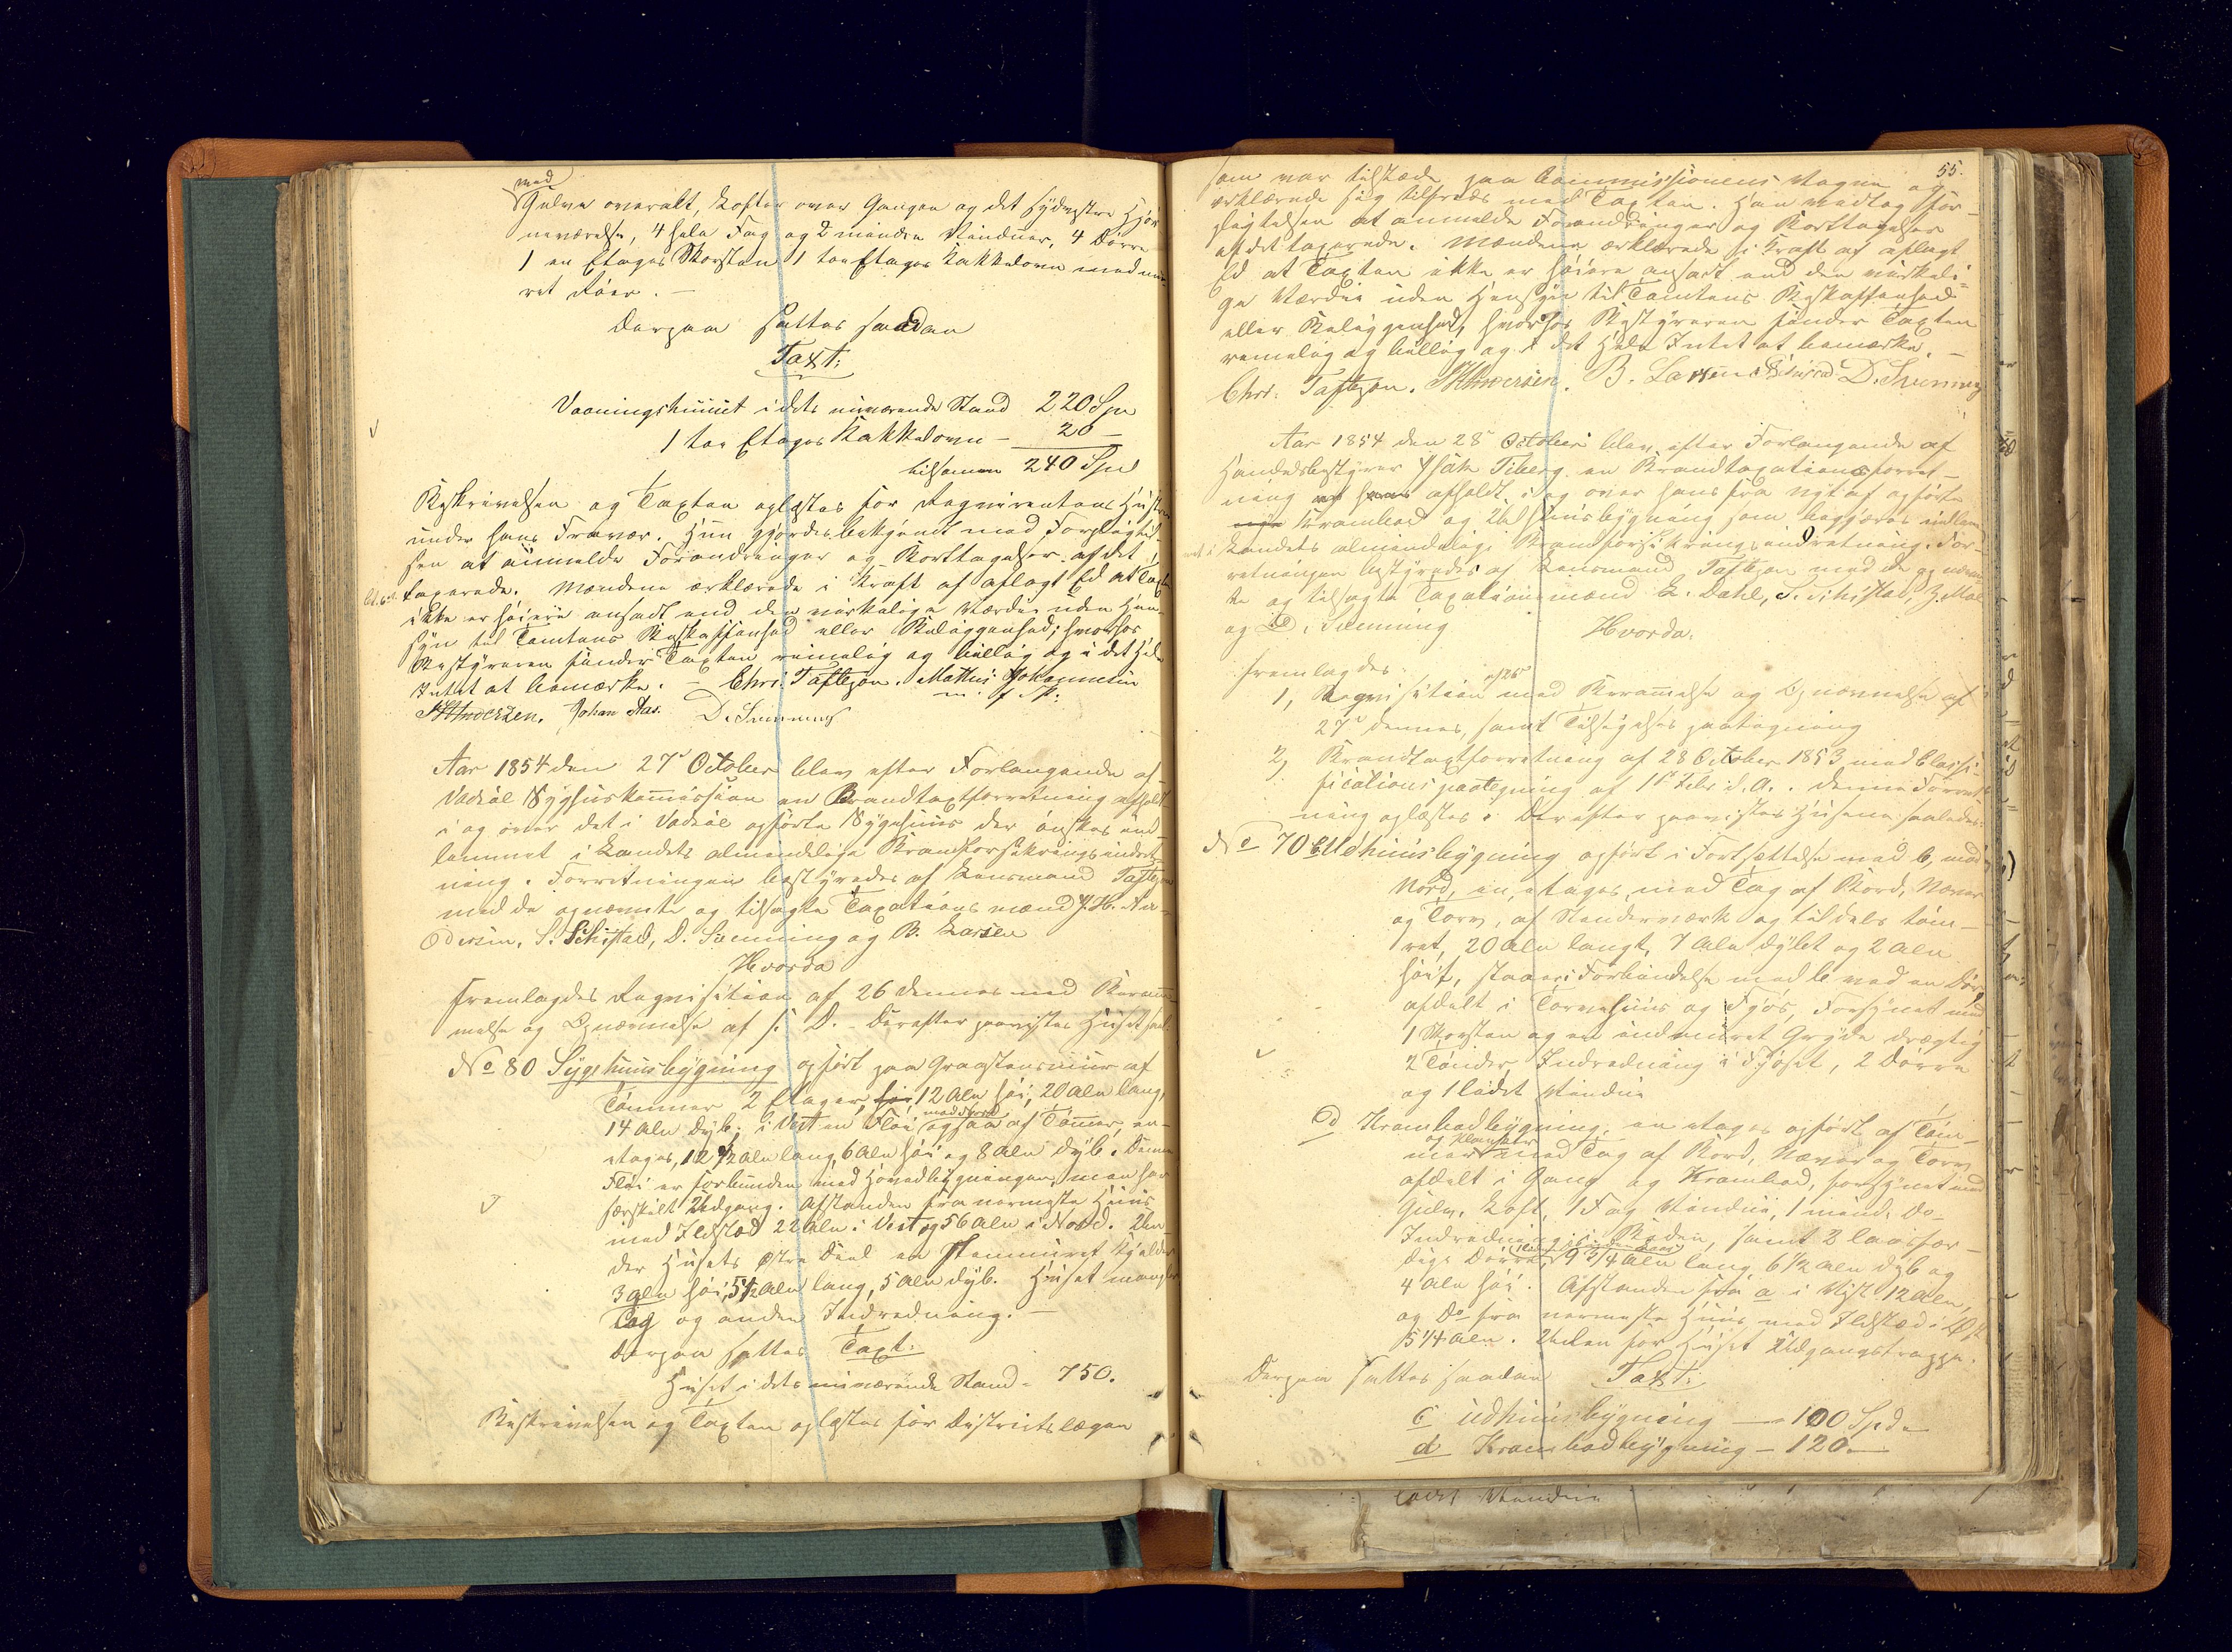 med
Gulve overalt, Lofter over Gangen og det sydvestre Hjør-
neværelse, 4 hele Fag og 2 mindre Vinduer, 4 Dørre
1 en Etages Skorsten 1 toe Etages Kakkelovn med mu-
ret Røer. —
Derpaa sattes saadan
Taxt:
Vaaningshuuset i dets nuværende Stand 220 Spe
1 toe Etages Kakkelovn — 20 —
tilsamen 240 Spd
Beskrivelsen og Taxten oplæstes for Reqvirentens Hustru
under hans Fravær. Hun gjordes bekjendt med Forpligtel-
sen at anmelde Forandringer og Borttagelser af det
taxerede. Mændene erklærede i Kraft af aflagt Ed at Taxten
ikke er høiere ansadt end den virkelige Værdie uden Hen-
syn til Tomtens Beskaffenhed eller Beliggenhed; hvorhos
Bestyreren finder Taxten rimelig og billig og i det Hele
Intet at bemærke. — Chr. Taftezon. Mathis Johannesen
m. f. P.
JHAndersen. Johan Aas. D. Svenning
Aar 1854 den 27de October blev efter Forlangende af
Vadsøe Sygehuskommission en Brandtaxtforretning afholdt
i og over det i Vadsøe opførte Sygehuus der ønskes ind-
lemmet i Landets almindelige Brandforsikringsindret-
ning. Forretningen bestyredes af Lensmand Taftezon
med de opnævnte og tilsagte Taxationsmænd J. H. An-
dersen, S. Schistad, D. Svenning og B. Larsen
Hvorda
fremlagdes Reqvisition af 26 dennes med Beram-
melse og Opnævnelse af s. D. — Derefter paavistes Huset saal.
No 80 Sygehuusbygning opført paa Graastensmuur af
Tømmer 2 Etager, 12 Alen høi, 20 Alen lang,
14 Alen dyb; i Vest en Fløi ogsaa af Tømmer, en
etages, 12 1/2 Alen lang, 6 Alen høi og 8 Alen dyb. Denne
Fløi er forbunden med Hovedbygningen, men har
særskilt Udgang. Afstanden fra nærmeste Huus
med Ildsted 22 Alen i Vest og 56 Alen i Nord. Un-
der Husets østre Deel en stenmuret Kjelder
3 Alen høi, 5 1/2 Alen lang, 5 Alen dyb. Huset mangler
Tag og anden Indredning. —
Derpaa sattes Taxt:
Huset i dets nuværende Stand — 750.
Beskrivelsen og Taxten oplæstes for Districtslægen
55.
som var tilstæde paa Commissionens Vegne og
erklærede sig tilfreds med Taxten. Han modtog For-
pligtelsen at anmelde Forandringer og Borttagelser
af det taxerede. Mændene erklærede i Kraft af aflagt
Ed at Taxten ikke er høiere ansadt end den virkeli-
ge Værdie uden Hensyn til Tomtens Beskaffenhed
eller Beliggenhed, hvorhos Bestyreren finder Taxten
rimelig og billig og i det Hele Intet at bemærke. —
Chr. Taftezon. JHAndersen. B. Larsen. D. Svenning
Aar 1854 den 28de October blev efter Forlangende af
Handelsbestyrer Isak Figherg en Brandtaxationsforret-
ning afholdt i og over hans fra nyt af opførte
Krambod og Udhuusbygning som begjæres indlem-
met i Landets almindelige Brandforsikringsindretning. For-
retningen bestyredes af Lensmand Taftezon med de opnævn-
te og tilsagte Taxationsmænd L. Dahl, S. Schistad, Z. Moe
og D. Svenning Hvorda:
fremlagdes
1, Reqvisition af 26 med Berammelse og Opnævnelse af
27de dennes, samt Tilsigelses paategning
2, Brandtaxtforretning af 28 October 1853 med Classi-
ficationspaategning af 1ste Febr. d. A. Denne Forret-
ning oplæstes. Derefter paavistes Husene saaledes:
No 70 c Udhuusbygning opført i Fortsættelse med b, mod
Nord, en etages, med Tag af Bord, Næver
og Torv, af Stenderværk og tildels tøm-
ret, 20 Alen langt, 7 Alen dybt og 2 Alen
høit, staaer i Forbindelse med b ved en Dør,
afdelt i Torvehuus og Fjøs, Forsynet med
1 Skorsten og en indmuret Gryde drægtig
2 Tønder, Indredning i Fjøset, 2 Dørre
og 1 lidet Vindue
d Krambodbygning, en etages opført af Tøm-
mer og Planker med Tag af Bord, Næver og Torv,
afdelt i Gang og Krambod, forsynet med
Gulv, Loft, 1 Fag Vindue, 1 mindre Do.
Indredning i Boden, samt 2 laasfær-
dige Dørre, 9 3/4 Alen lang 6 1/2 Alen dyb og
4 Alen høi. Afstanden fra a i Vest 12 Alen,
og Do fra nærmeste Huus med Ildsted i Øst
15 1/4 Alen. Uden for Huset Udgangstrappe.
Derpaa sattes saadan Taxt:
c Udhuusbygning — 100 Spd.
d Krambodbygning — 120 —